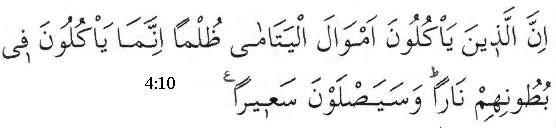 اِنَّ الَّذ۪ينَ يَأْكُلُونَ اَمْوَالَ الْيَتَامٰى ظُلْمًا اِنَّمَا يَأْكُلُونَ ف۪ي
بُطُونِهِمْ نَارًاۜ وَسَيَصْلَوْنَ سَع۪يرًا۟ ع
4:10